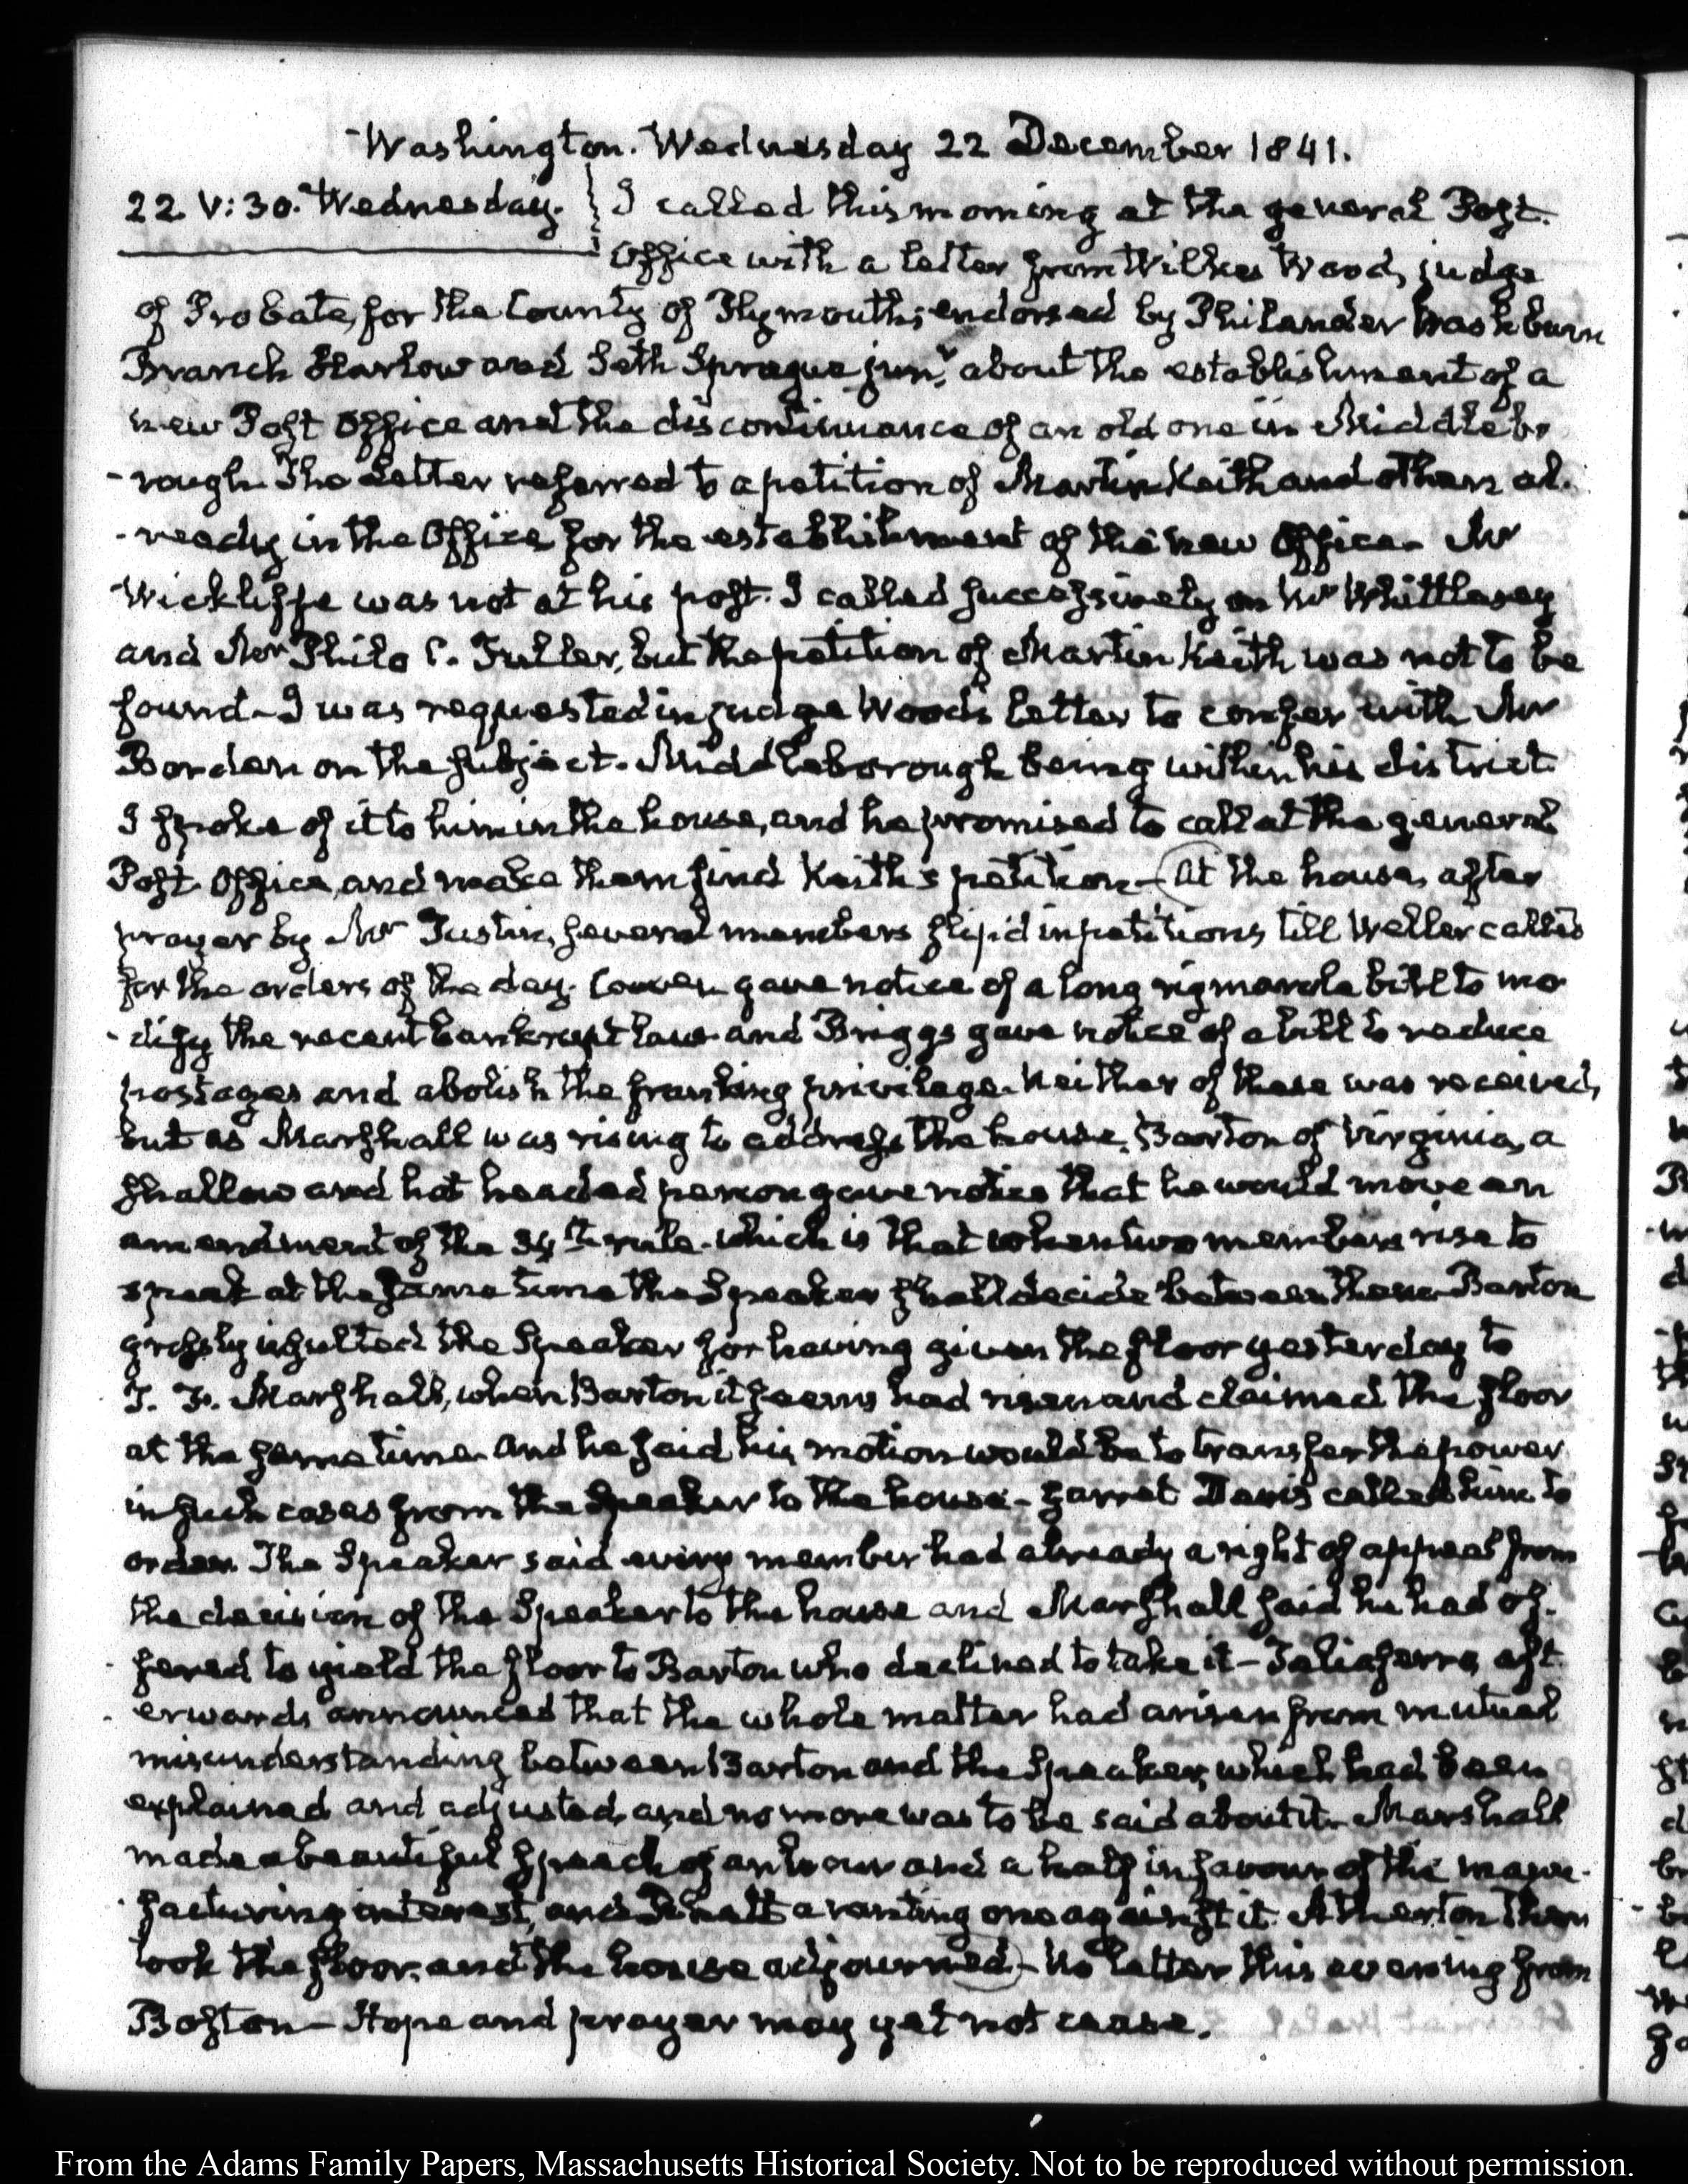 Washington. Wednesday 22 December 1841.
22. V:30. Wednesday. I called this morning at the general Post-
Office with a letter from Wilkes Wood, judge
of Probate, for the County of Plymouth; endorsed by Philander Washburn
Branch Harlow and Seth Sprague junr. about the establishment of a
new Post Office and the discontinuance of an old one in Middlebo
-rough. The Letter referred to a petition of Martin Keith and others al-
-ready in the Office for the establishment of the new Office. Mr
Wickliffe was not at his post. I called successively on Mr Whittlesey
and Mr Philo C. Fuller, but the petition of Martin Keith was not to be
found - I was requested in judge Wood's letter to confer with Mr
Borden on the subject. Middleborough being within his district
I spoke of it to him in the house, and he promised to call at the general
Post Office, and make them find Keith's petition - At the house, after
prayer by Mr Tustin, several members slip'd in petitions till Weller called
for the orders of the day. Cowen gave notice of a long rigmarole bill to mo
-dify the recent bankrupt law and Briggs gave notice of a bill to reduce
postages and abolish the franking privilege. Neither of these was received,
but as Marshall was rising to address the house, Barton of Virginia, a
shallow and hot headed person gave notice that he would move an
amendment of the 34th. rule. which is that when two members rise to
speak at the same time the Speaker shall decide between them. Barton
grossly insulted the Speaker for having given the floor yesterday to
T. F. Marshall, when Barton it seems had risen and claimed the floor
at the same time. And he said his motion would be to transfer the power
in such cases from the Speaker to the house - Garret Davis called him to
order. The Speaker said every member had already a right of appeal from
the decision of the Speaker to the house and Marshall said he had of-
-fered to yield the floor to Barton who declined to take it - Taliaferro, aft-
-erwards announced that the whole matter had arisen from mutual
misunderstanding between Barton and the Speaker, which had been
explained and adjusted, and no more was to be said about it. Marshall
made a beautiful speech of an hour and a half in favour of the manu-
-facturing interest, and Rhett a ranting one against it. Atherton then
took the floor, and the house adjourned - No letter this evening from
Boston - Hope and prayer may yet not cease.
From the Adams Family Papers, Massachusetts Historical Society. Not to be reproduced without permission.